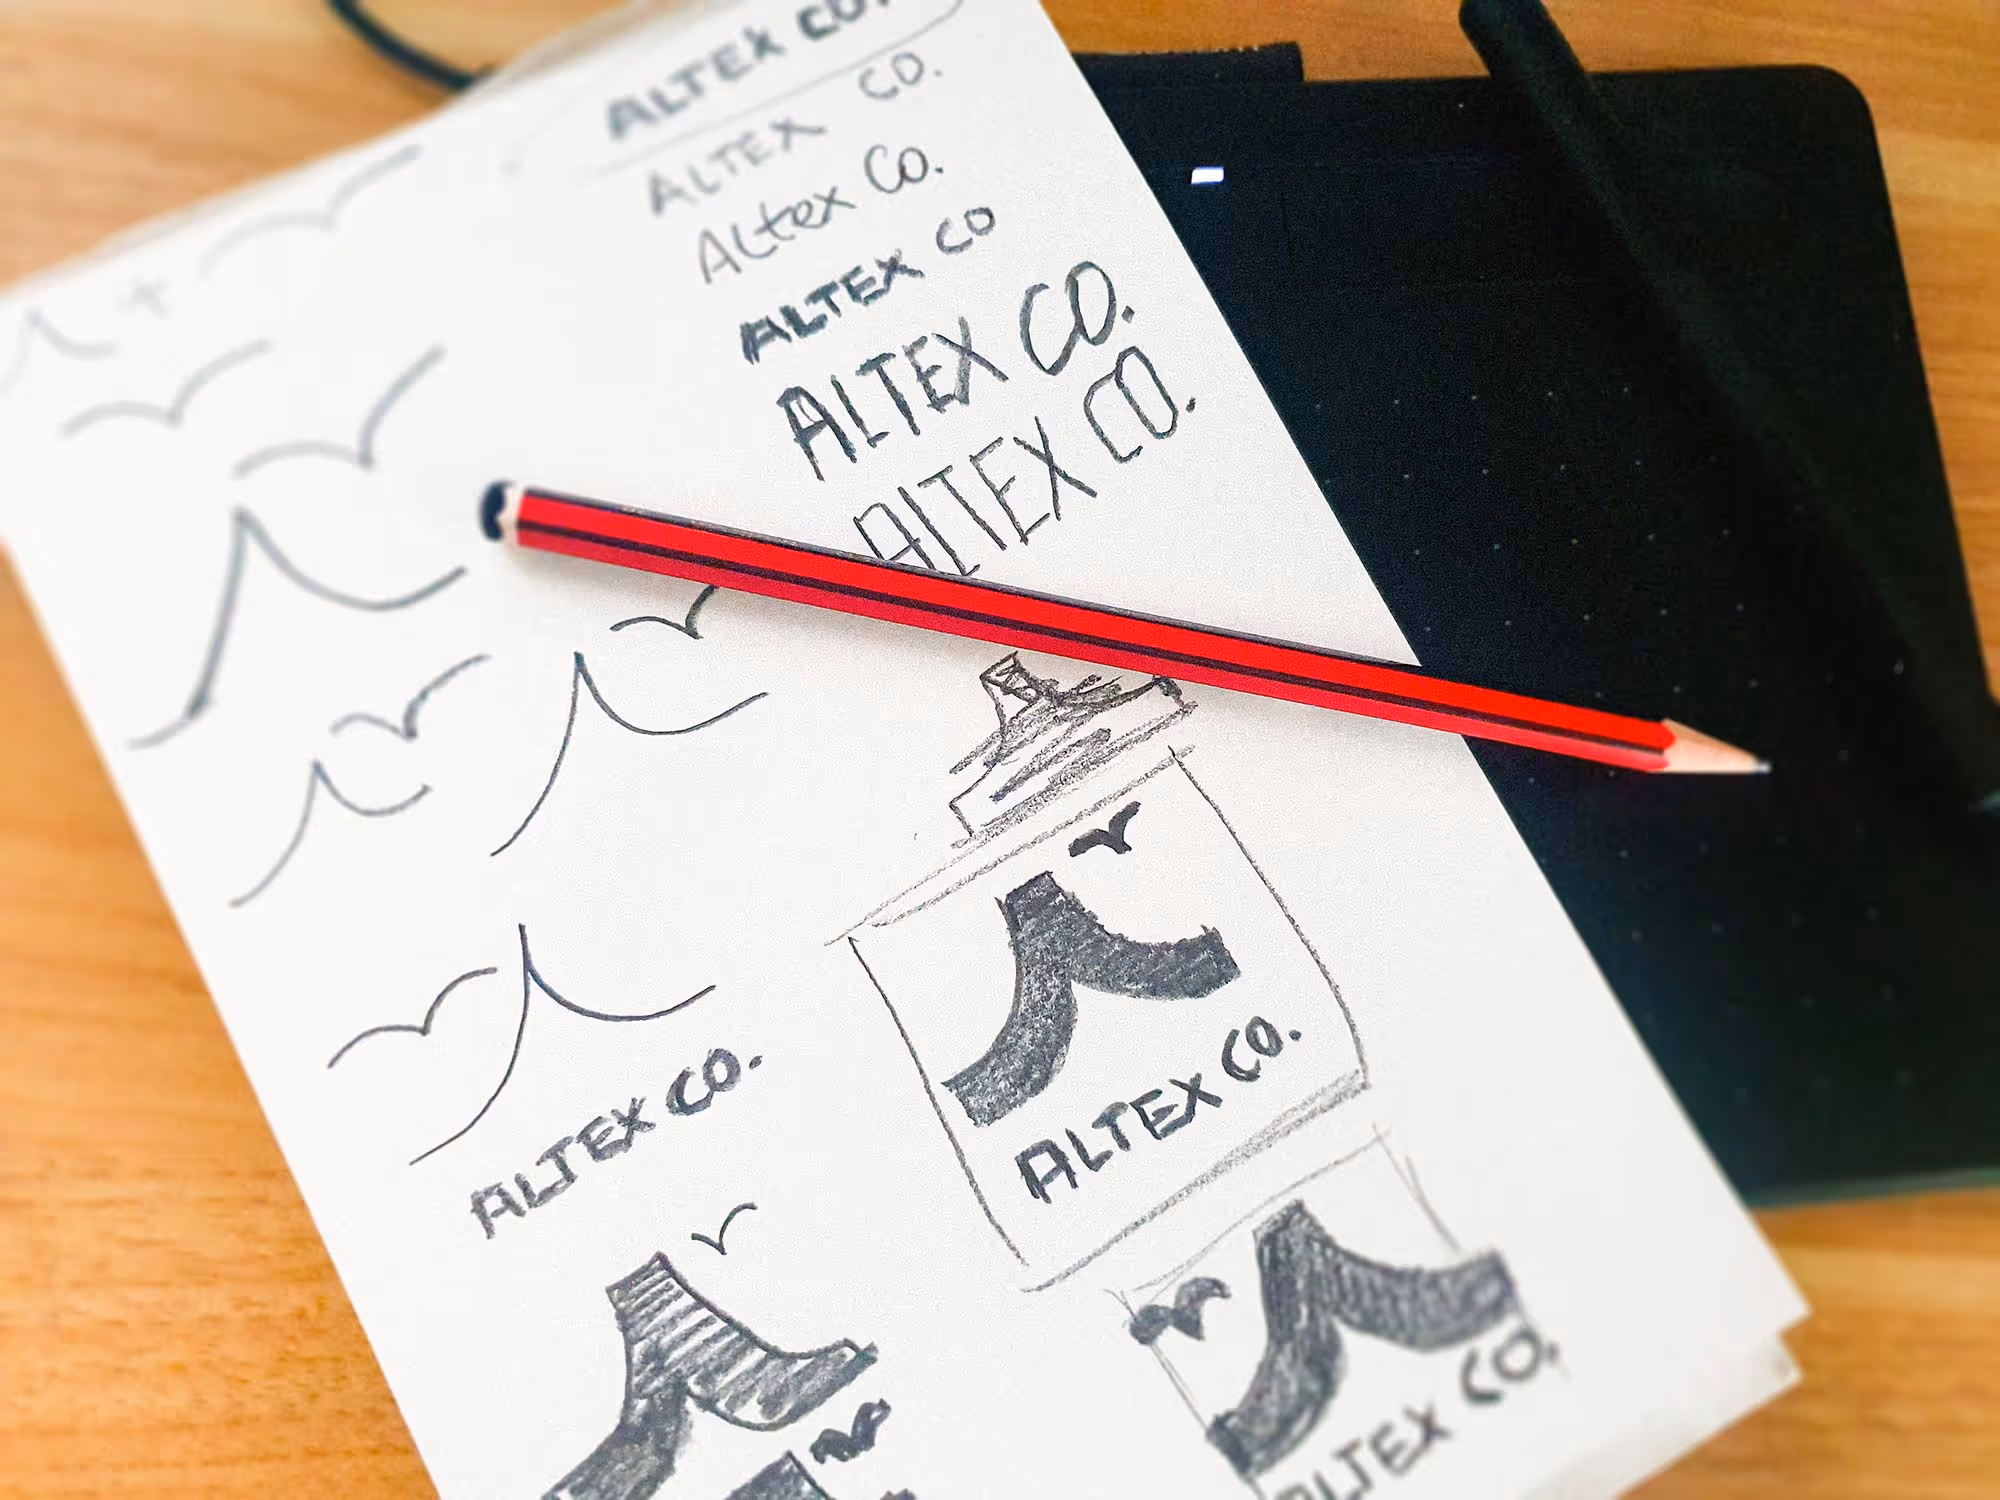 ALTEX CO.
ALTEX CO.
ALtex Co.
ALTEX CO
ALTEX CO.
ALTEX CO.
ALTEX CO.
ALTEX CO.
ALTEX CO.